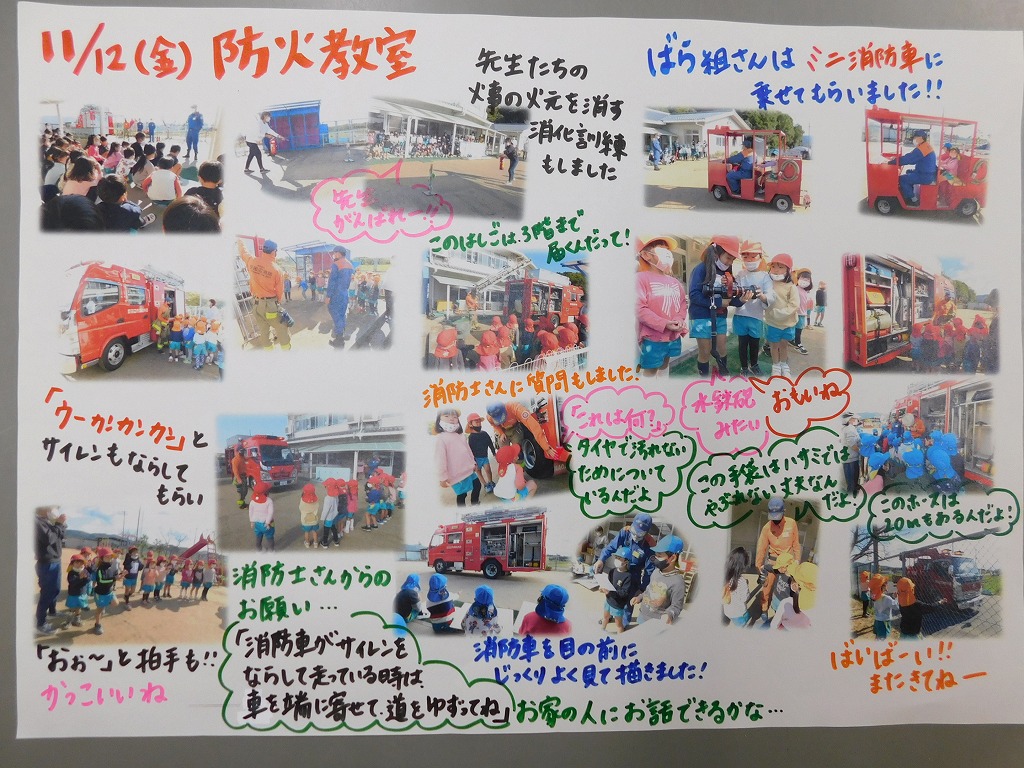 11/12(金) 防火教室
先生たちの
火事の火元を消す
消化訓練
もしました
ばら組さんは ミニ消防車に
乗せてもらいました!!
先生
がんばれー!!
このはしごは、3階まで
届くんだって!
消防士さんに質問もしました!
「これは何?」
タイヤで汚れない
ためについて
いるんだよ
水鉄砲
みたい
おもいね
この手袋はハサミでは
やぶれない丈夫なん
だよ!
このホースは
20mもあるんだよ!
「ウーカンカンカン」と
サイレンもならして
もらい
「おぉ〜」と拍手も!!
かっこいいね
消防士さんからの
お願い…
「消防車がサイレンを
ならして走っている時は、
車を端に寄せて、道をゆずってね」
お家の人にお話できるかな…
消防車を目の前に
じっくりよく見て描きました!
ばいばーい!!
またきてねー